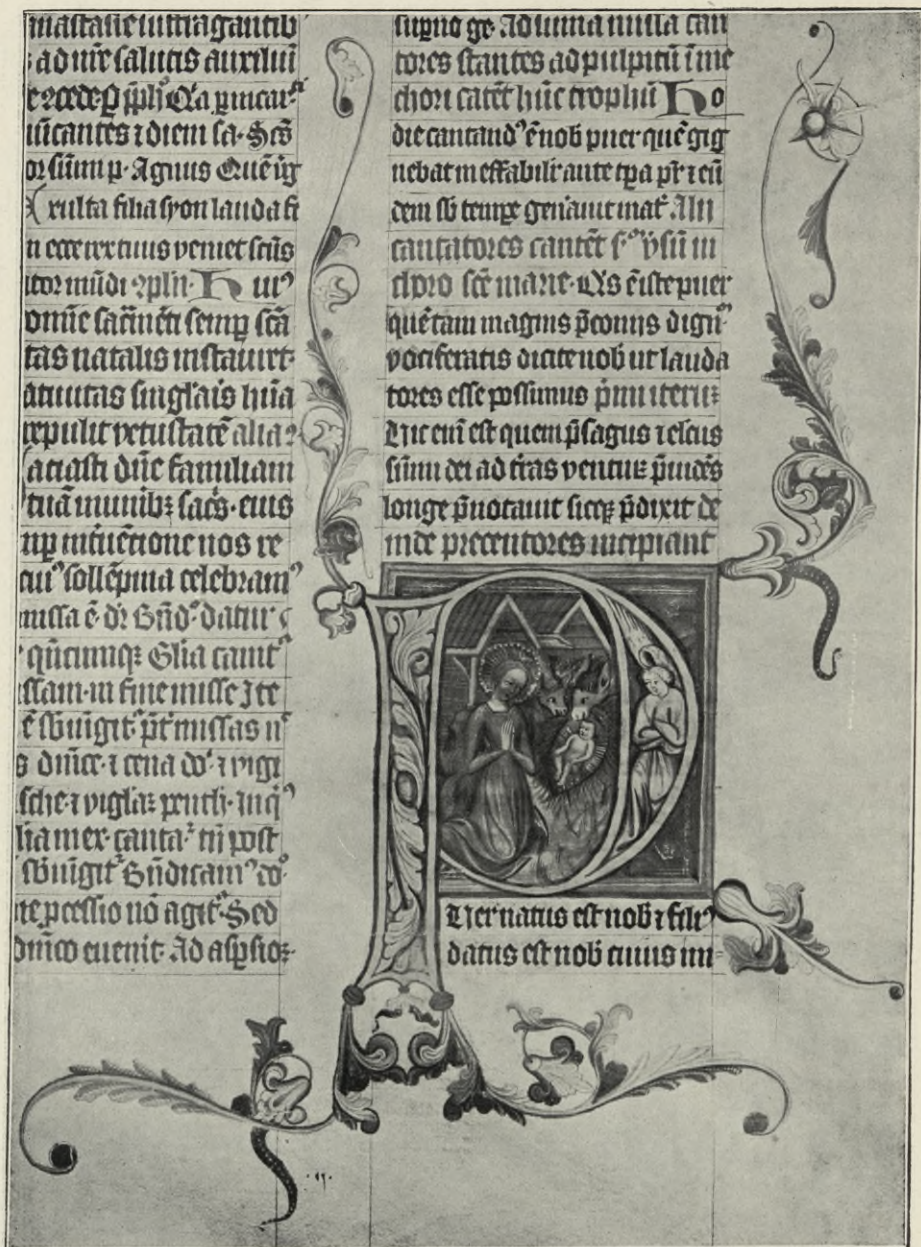 ad nr̄e salutis auxiliū
iūicantes ⁊ diem sa. Scōs
Agnus Quē ūg
xulta filia syon lauda fi
n ecce rex tuus veniet scūs
itor mūdi ꝯpln̄. Huiꝰ
omīe sacͣmēti semꝑ scā
tas natalis instaurͭ.
atiuitas singlāis hūa
repulit vetustatē alia
atiasti dn̄e familiam
tuā munibꝫ sacͥs. eius
ꝑ intͥuētione nos re
cuiꝰ sollēpnia celebramꝰ
missa ē. Bn̄d. datur
qn̄cumqꝫ Glīa canitͬ
issam. in fine misse Ite
ē sbiūgitͬ. pͭ missas nͥ
s dn̄ice. ⁊ cena do. ⁊ vigi
sche. ⁊ vigͥlia pentḣ.
cantaͬ tn̄ post
sbiūgitͬ Bn̄dicamꝰ do
te ꝓcessio nō agitͬ. Sed
dn̄ico euenit. Ad asꝑsioꝫ
suꝑno ge. Ad vͥtima missa can
tores stantes ad pulpitū ī me
chori cātēt hūc trophū Ho
die cantandꝰ ē nob puer quē gig
nebat ineffabilͥr ante tꝑa pr̄ ⁊ eū
dem sb tempꝛe gen̄auit mat̄. Alii
cantatores cantēt
choro scē marie. Qͥs ē iste puer
quē tam magnis p̄coniis dignū
vociferatis dicite nob ut lauda
tores esse possimus pͥmi iterū
Hic eni est quem p̄sagus ⁊ elcūs
simͥ dei ad tͥras venturꝫ p̄uidēs
longe p̄notauit sicqꝫ p̄dixit de
inde precentores incipiant
P
Uer natus est nob ⁊ filiꝰ
datus est nob cuius im